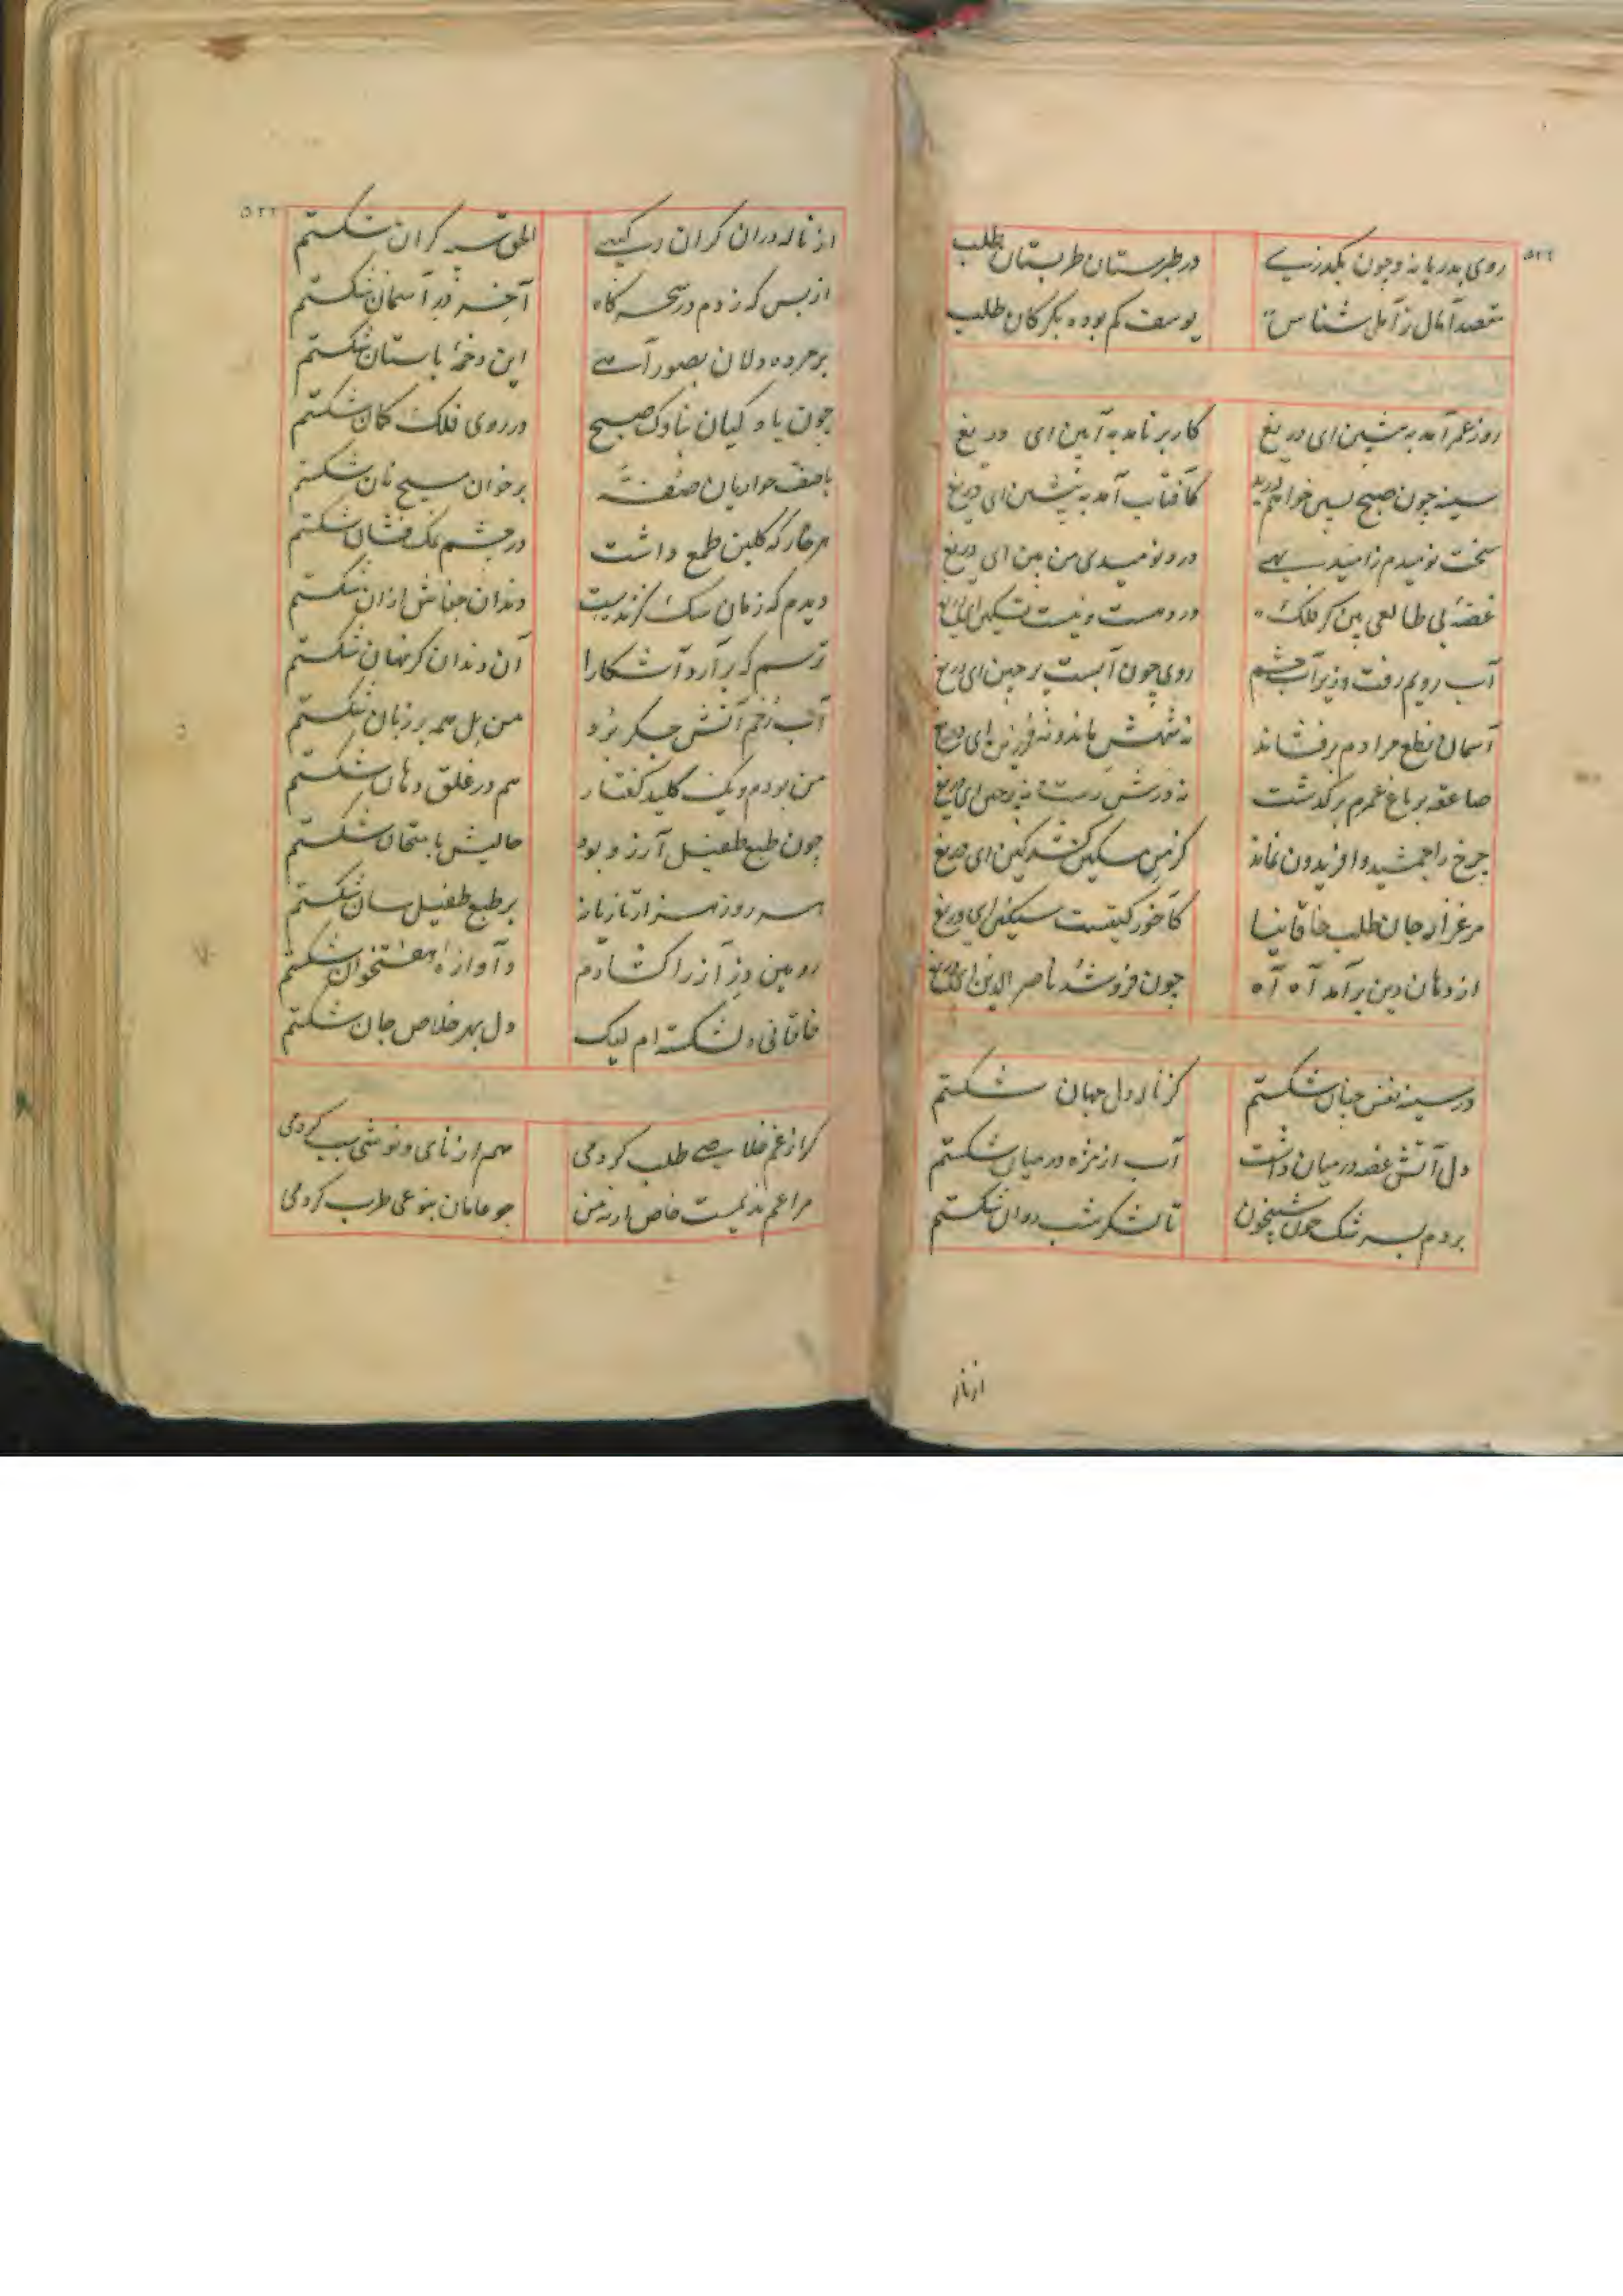 ۵۲۲
روی بدریا نه و چون بگذری در طبرستان طربستان طلب
مقصد آمال ز آمل شناس یوسف گم بوده بگرگان طلب
روز عمر آمد به پیشین ای دریغ کار بر نامد به آیین ای دریغ
سینه چون صبح پسین خواهم درید کآفتاب آمد به پیشین ای دریغ
سخت نومیدم ز امید بهی درد نومیدی من بین ای دریغ
غصهٔ بی طالعی بین کز فلک درد هست و نیست تسکین ای دریغ
آب رویم رفت و زیر آب چشم روی چون آبست پر چین ای دریغ
آسمان نطع مرادم برفشاند نه شهش ماند و نه فرزین ای دریغ
صاعقه بر باغ عمرم برگذشت نه درش پرچین ای دریغ
چرخ را جمشید و افریدون نماند کز من مسکین کشد کین ای دریغ
مرغزار جان طلب خاقانیا کآخور گیتیست سنگین ای دریغ
از دهان دین برآمد آه آه چون فرو شد ناصر الدین ای دریغ
در سینه نفس چنان شکستم کز ناله دل جهان شکستم
دل آتش غصه در میان داشت آب از مژه در میان شکستم
بردم بسرشک خون شبیخون تا لشکر شب روان شکستم
از ناز
از ناله دران گران رکیبی الحق سر گران شکستم
از بس که زدم در سحرگاه آخر در آسمان شکستم
بر مرده دلان بصور آهی این دخمهٔ باستان شکستم
چون یاوگیان بناوک صبح در روی فلک کمان شکستم
با صف حواریان صفه بر خوان مسیح نان شکستم
هر خار که گلبن طمع داشت در چشم نمک فشان شکستم
دیدم که زمان سگ گزنده‌ست دندان جفاش از آن شکستم
ترسم که برآرد آشکارا آن دندان کز نهان شکستم
آتش جگر برد من بل همه بر زبان شکستم
من بودم و یک کلید گفتار هم در غلق دهان شکستم
چون طبع طفیل آرزو بود حالیش بامتحان شکستم
هر روز هزار تازیانه بر طبع طفیل سان شکستم
رویین دز آز را گشادم و آوازهٔ هفتخوان شکستم
خاقانی دل‌شکسته‌ام لیک دل بهر خلاص جان شکستم
گر از غم خلاصی طلب کردمی هم از نای و نوشی سبب کردمی
مرا غم ندیمست خاص ارنه من چو عامان بنوعی طرب کردمی